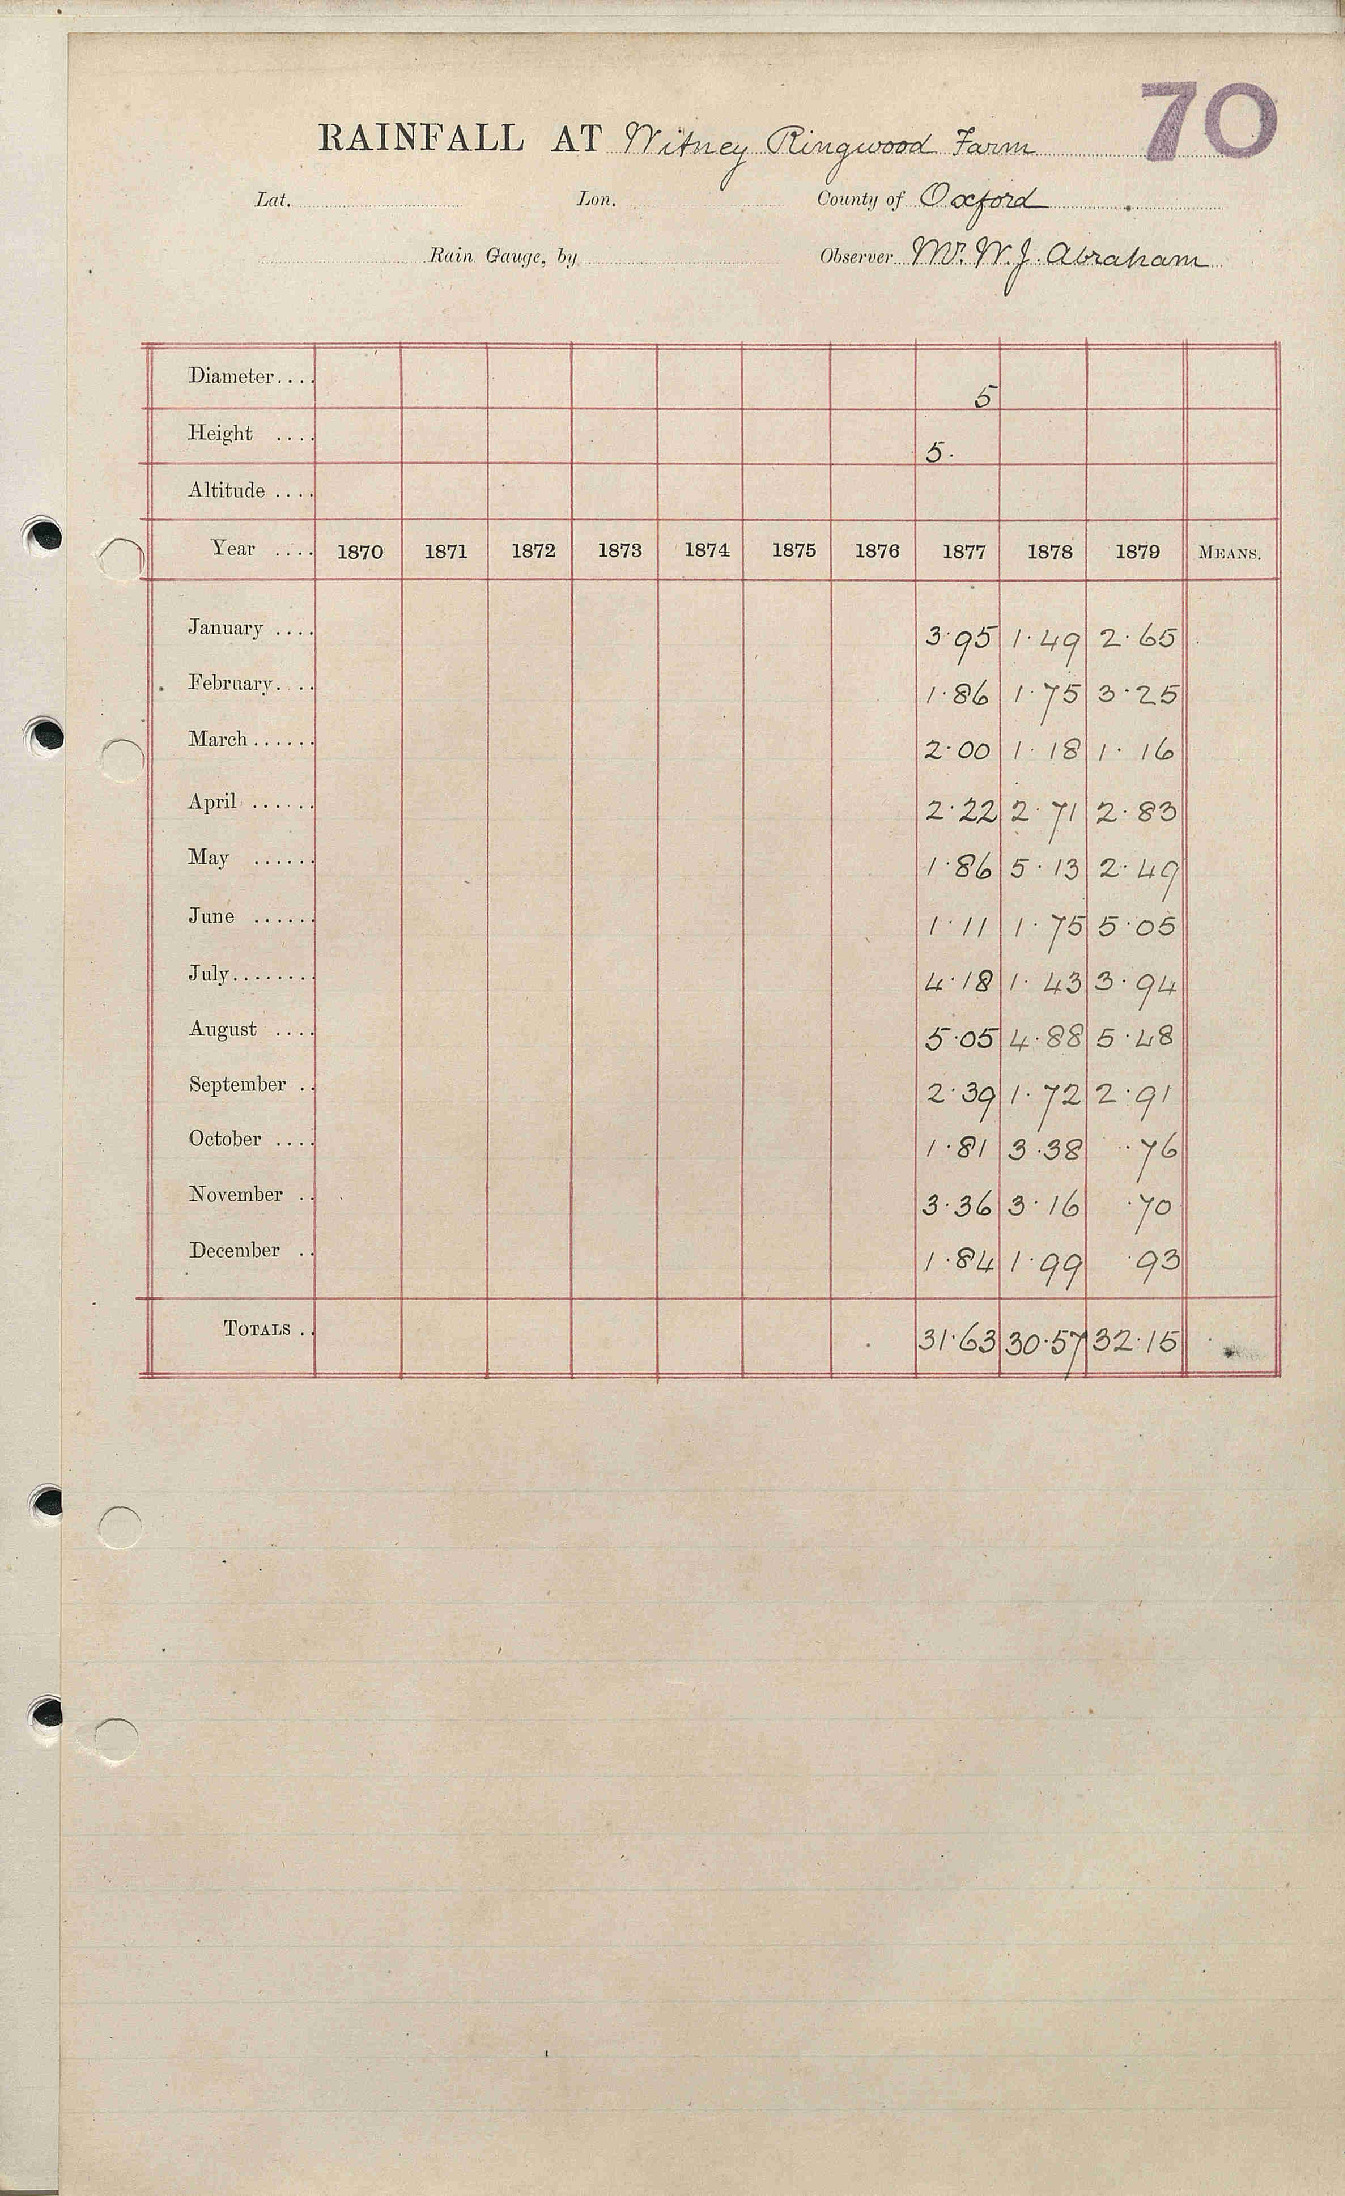 70
RAINFALL AT Witney Ringwood Farm
Lat. Lon. County of Oxford
Rain Gauge, by Observer Mr. W. J. Abraham
Diameter.... 5
Height .... 5.
Altitude ....
Year .... 1870 1871 1872 1873 1874 1875 1876 1877 1878 1879 MEANS.
January .... 3.95 1.49 2.65
February.... 1.86 1.75 3.25
March...... 2.00 1.18 1.16
April ...... 2.22 2.71 2.83
May ...... 1.86 5.13 2.49
June ...... 1.11 1.75 5.05
July........ 4.18 1.43 3.94
August .... 5.05 4.88 5.48
September .. 2.39 1.72 2.91
October .... 1.81 3.38 .76
November .. 3.36 3.16 .70
December .. 1.84 1.99 .93
TOTALS .. 31.63 30.57 32.15